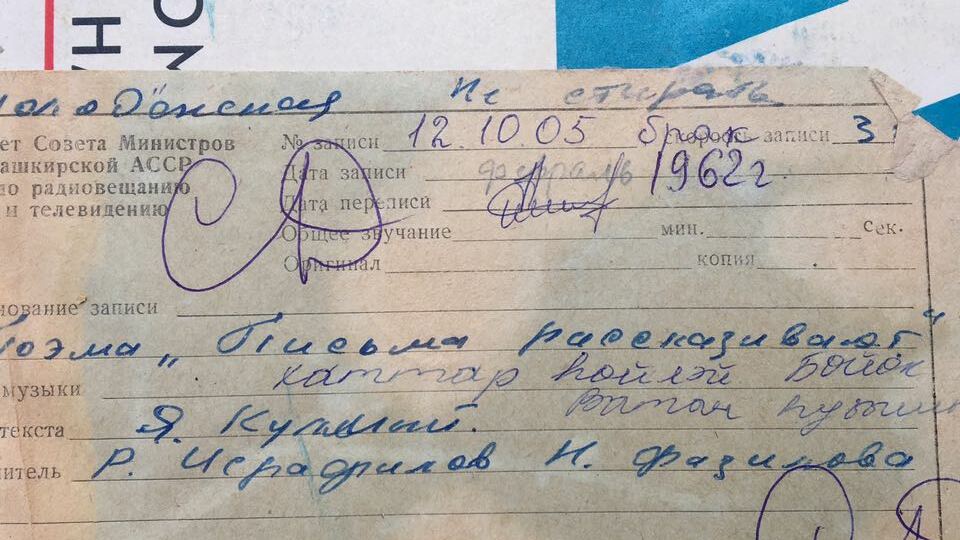 Не стирать
ет Совета Министров
ашкирской АССР
по радиовещанию
и телевидению
№ записи 12.10.05 брак скорость записи 3
Дата записи февраль 1962 г
Дата переписи
Общее звучание мин. сек.
Оригинал копия
нование записи
Поэма „Письма рассказывают"
музыки хаттар һөйләй Бөйөк
Ватан
текста Я. Кулмый.
итель Р. Исрафилов Н. Фазылова